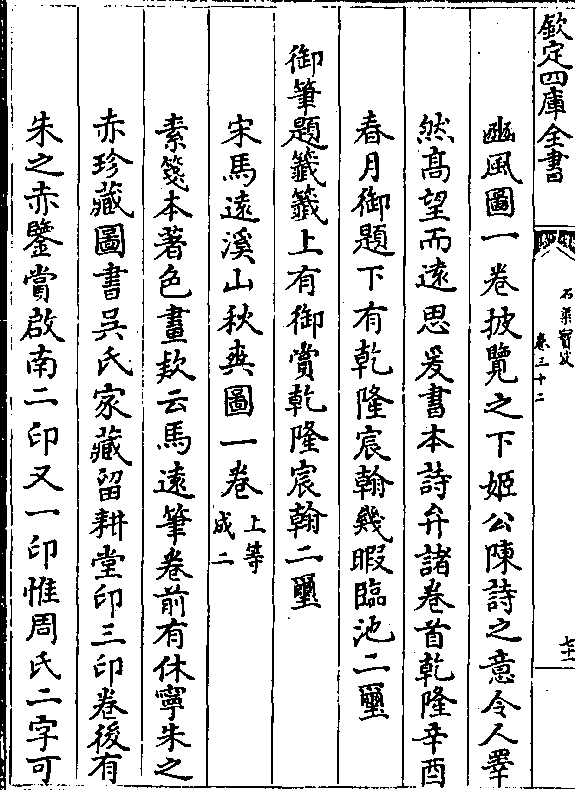 欽定四庫全書
石渠寶笈
卷三十二
七十一
豳風圖一卷披覽之下姬公陳詩之意令人睪
然髙望而逺思爰書本詩弁諸卷首乾隆辛酉
春月御題下有乾隆宸翰幾暇臨池二璽
御筆題籤籤上有御賞乾隆宸翰二璽
宋馬逺溪山秋爽圖一卷上等成二
素箋本著色畫款云馬逺筆卷前有休寧朱之
赤珍藏圖書吳氏家藏留耕堂印三印卷後有
朱之赤鑒賞啟南二印又一印惟周氏二字可